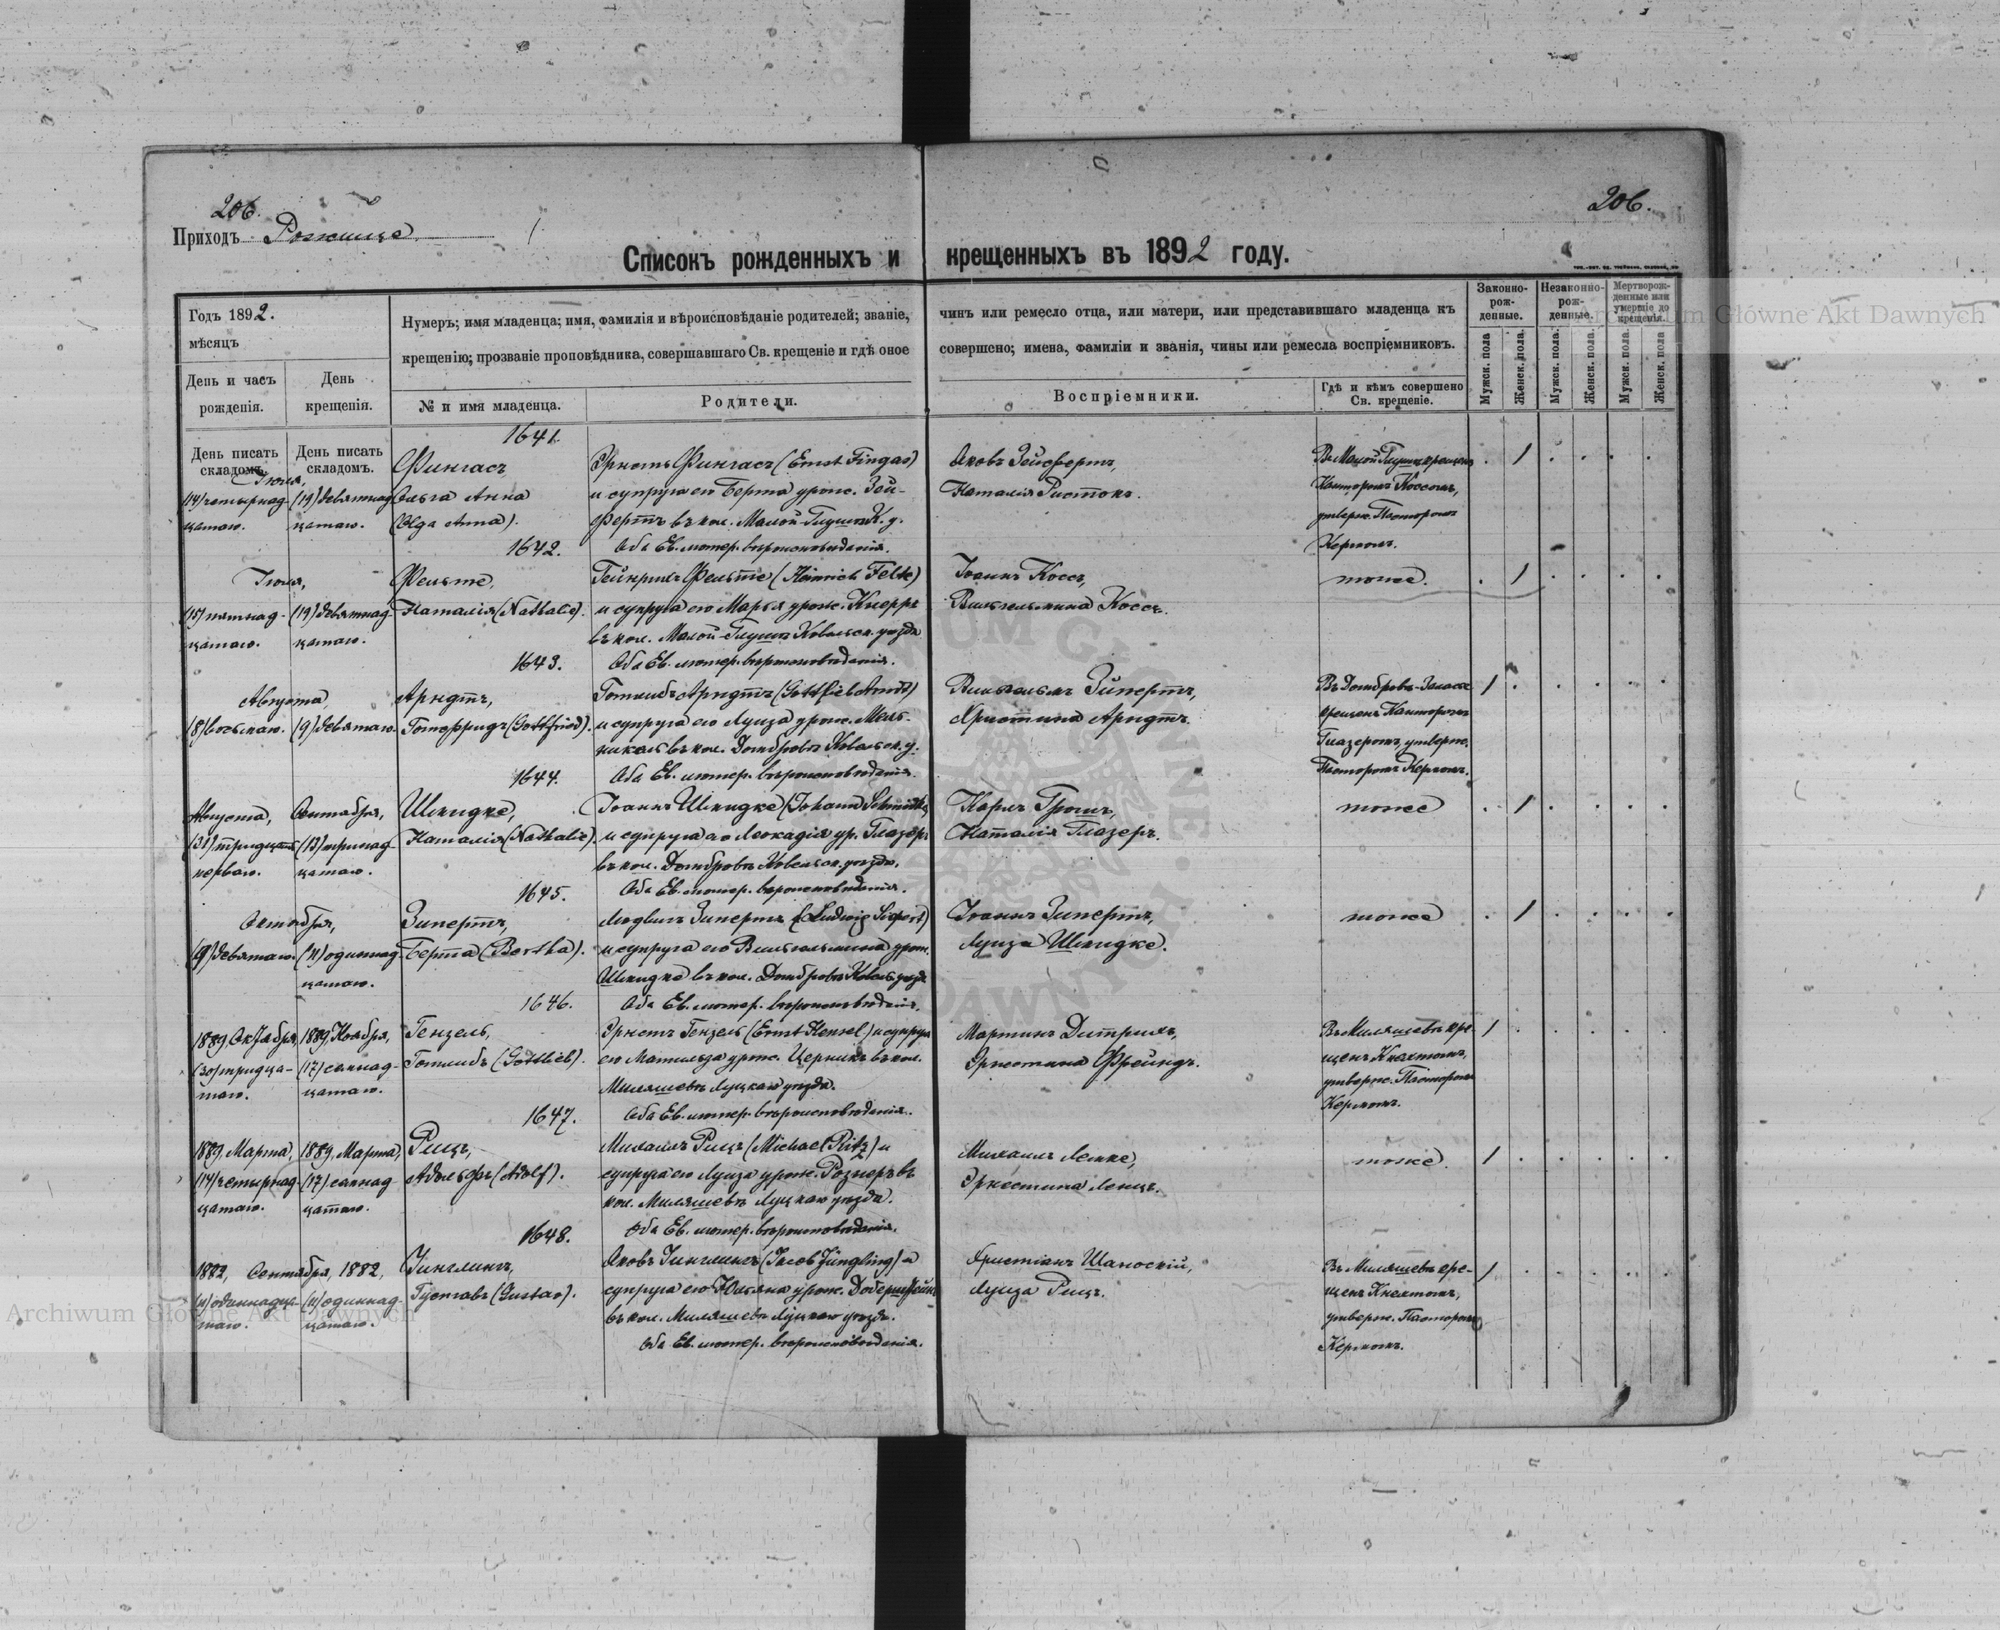 206.
206.
Приходъ Рожище.
Списокъ рожденныхъ и крещенныхъ въ 1892 году.
Годъ 1892.
мѣсяцъ
День и часъ рожденія.
День крещенія.
Нумеръ; имя младенца; имя, фамилія и вѣроисповѣданіе родителей; званіе, чинъ или ремесло отца, или матери, или представившаго младенца къ
крещенію; прозваніе проповѣдника, совершавшаго Св. крещеніе и гдѣ оное совершено; имена, фамиліи и званія, чины или ремесла воспріемниковъ.
№ и имя младенца.
Родители.
Воспріемники.
Гдѣ и кѣмъ совершено
Св. крещеніе.
Законно-
рож-
денные.
Незаконно-
рож-
денные.
Мертворож-
денные или
умершіе до
крещенія.
Мужск. пола
Женск. пола.
Мужск. пола.
Женск. пола.
Мужск. пола.
Женск. пола
День писать
складомъ.
День писать
складомъ.
1641.
Іюля,
(14) четырнад-
цатаго.
(19) девятнад-
цатаго.
Фингасъ
Ольга Анна
(Olga Anna).
Эрнстъ Фингасъ (Ernst Fingas)
и супруга его Берта урож. Зей-
фертъ въ кол. Малой-Глушѣ К. у.
Оба Ев. лютер. вѣроисповѣданія.
Яковъ Зейфертъ,
Наталія Ристокъ.
Въ Малой Глушѣ крещенъ
Канторомъ Коссомъ,
утверж. Пасторомъ
Кермомъ.
1642.
Іюля,
(15) пятнад-
цатаго.
(19) девятнад-
цатаго.
Фельте,
Наталія (Nathalie).
Гейнрихъ Фельте (Heinrich Felte)
и супруга его Марья урож. Кнорръ
въ кол. Малой-Глушѣ Ковельск. уѣзда
Оба Ев. лютер. вѣроисповѣданія.
Іоаннъ Коссъ,
Вильгельмина Коссъ.
тоже.
1643.
Августа,
(8) восьмаго.
(9) девятаго.
Арндтъ,
Готфридъ (Gottfried).
Готлибъ Арндтъ (Gottlieb Arndt)
и супруга его Луиза урож. Мель-
никель въ кол. Домбровѣ Ковельск. у.
Оба Ев. лютер. вѣроисповѣданія.
Вильгельмъ Зипертъ,
Христина Арндтъ.
крещенъ Канторомъ
Глазеромъ, утверж.
Пасторомъ Кермомъ.
1644.
Августа,
(31) тридцать
перваго.
Сентября,
(13) тринад-
цатаго.
Шмидке,
Наталія (Nathalie).
Іоаннъ Шмидке (Johann Schmidke)
и супруга его Леокадія ур. Глазеръ
въ кол. Домбровѣ Ковельск. уѣзда.
Оба Ев. лютер. вѣроисповѣданія.
Карлъ Громъ,
Наталія Глазеръ.
тоже
1645.
Октября,
(9) девятаго.
(11) одиннад-
цатаго.
Зипертъ,
Берта (Bertha).
Людвигъ Зипертъ (Ludwig Siepert)
и супруга его Вильгельмина урож.
Шмидке въ кол. Домбровѣ Ковель. уѣзда
Оба Ев. лютер. вѣроисповѣданія.
Іоаннъ Зипертъ,
Луиза Шмидке.
тоже
1646.
1889, Октября,
(30) тридца-
таго.
1889, Ноября,
(17) семнад-
цатаго.
Гензель,
Готлибъ (Gottlieb).
Эрнстъ Гензель (Ernst Hensel) и супруга
его Матильда урож. Церникъ въ кол.
Миляшевѣ Луцкаго уѣзда.
Оба Ев. лютер. вѣроисповѣданія.
Мартинъ Дитрихъ,
Эрнестина Фрейндъ.
Въ Миляшевѣ кре-
щенъ Кнехтомъ,
утверж. Пасторомъ
Кермомъ.
1647.
1889, Марта,
(14) четырнад-
цатаго.
1889, Марта,
(17) семнад-
цатаго.
Рицъ,
Адольфъ (Adolf).
Михаилъ Рицъ (Michael Ritz) и
супруга его Луиза урож. Рознеръ въ
кол. Миляшевѣ Луцкаго уѣзда.
Оба Ев. лютер. вѣроисповѣданія.
Михаилъ Лемке,
Эрнестина Ленцъ.
тоже.
1648.
1882, Сентября, 1882,
(11) одиннадца-
таго.
(11) одиннад-
цатаго.
Зинглингъ,
Густавъ (Gustav).
Яковъ Зинглингъ (Jacob Jüngling) и
супруга его Юльяна урож.
въ кол. Миляшевѣ Луцкаго уѣзда.
Оба Ев. лютер. вѣроисповѣданія.
Христіанъ Шаноскій,
Луиза Рицъ.
Въ Миляшевѣ кре-
щенъ Кнехтомъ,
утверж. Пасторомъ
Кермомъ.
Archiwum Główne Akt Dawnych
Archiwum Główne Akt Dawnych